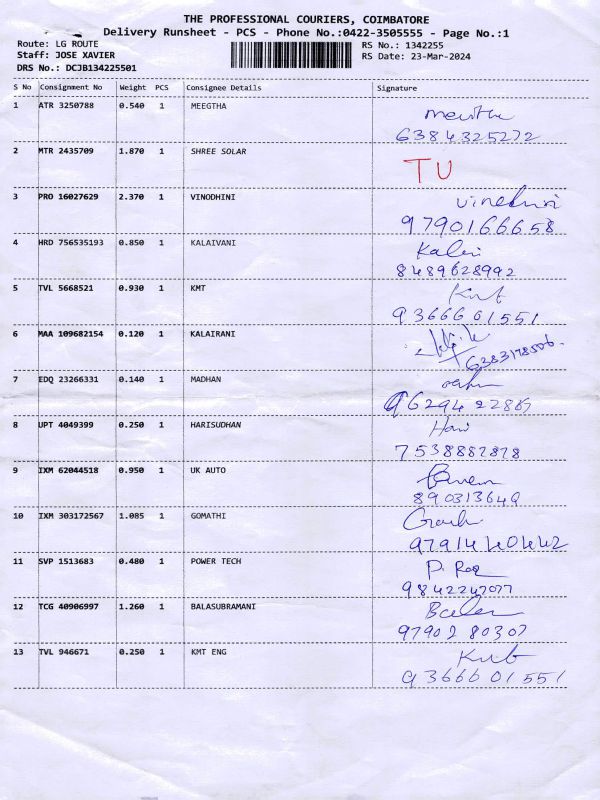 THE PROFESSIONAL COURIERS, COIMBATORE
Delivery Runsheet - PCS - Phone No.:0422-3505555 - Page No.:1
Route: LG ROUTE
Staff: JOSE XAVIER
DRS No.: DCJB134225501
RS No.: 1342255
RS Date: 23-Mar-2024
S No Consignment No Weight PCS Consignee Details Signature
1 ATR 3250788 0.540 1 MEEGTHA
6384325272
2 MTR 2435709 1.870 1 SHREE SOLAR
TU
3 PRO 16027629 2.370 1 VINODHINI
9790166658
4 HRD 756535193 0.850 1 KALAIVANI
8489628992
5 TVL 5668521 0.930 1 KMT
9366601551
6 MAA 109682154 0.120 1 KALAIRANI
6383178506.
7 EDQ 23266331 0.140 1 MADHAN
8 UPT 4049399 0.250 1 HARISUDHAN
Hari
7538887878
9 IXM 62044518 0.950 1 UK AUTO
890313649
10 IXM 303172567 1.085 1 GOMATHI
9791440442
11 SVP 1513683 0.480 1 POWER TECH
9842247077
12 TCG 40906997 1.260 1 BALASUBRAMANI
9790280307
13 TVL 946671 0.250 1 KMT ENG
9366601551